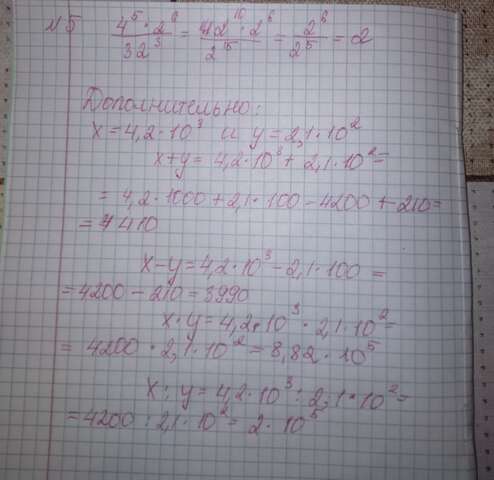 №5 4⁵ · 2⁶ / 32³ = 2¹⁰ · 2⁶ / 2¹⁵ = 2⁶ / 2⁵ = 2
Дополнительно:
x = 4,2 · 10³ и y = 2,1 · 10²
x + y = 4,2 · 10³ + 2,1 · 10² =
= 4,2 · 1000 + 2,1 · 100 = 4200 + 210 =
= 4410
x − y = 4,2 · 10³ − 2,1 · 100 =
= 4200 − 210 = 3990
x · y = 4,2 · 10³ · 2,1 · 10² =
= 4200 · 2,1 · 10² = 8,82 · 10⁵
x : y = 4,2 · 10³ : 2,1 · 10² =
= 4200 : 2,1 · 10² = 2 · 10⁵